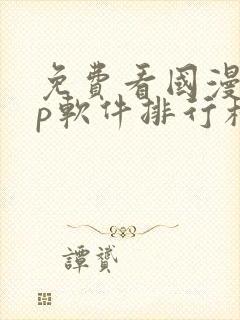 免費看國漫
p軟件排行
譚贇